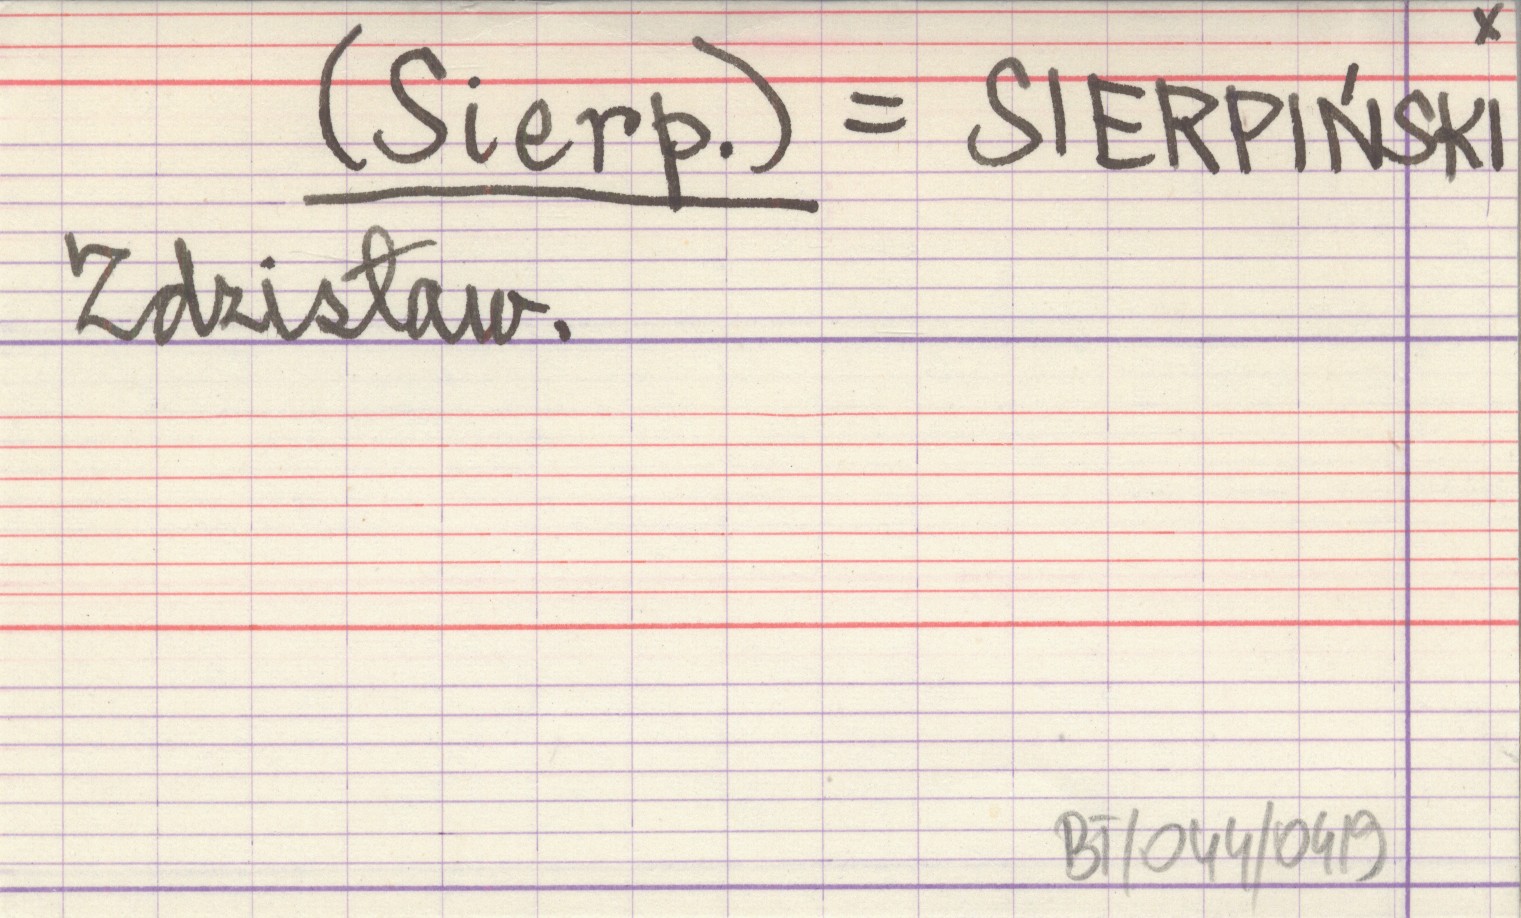 x
(Sierp.) = SIERPIŃSKI
Zdzisław.
BT/044/0419